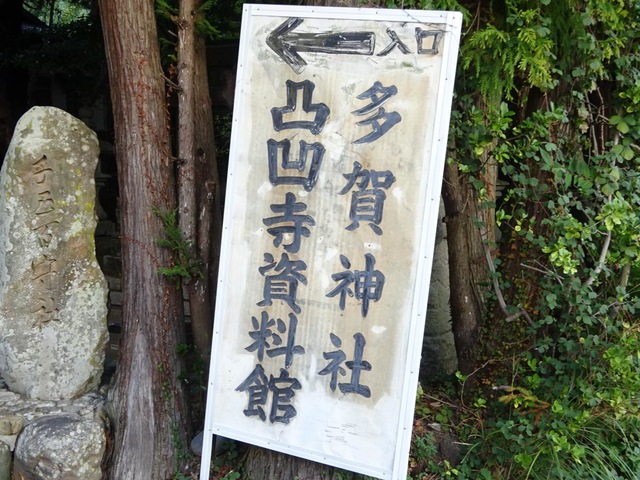 入口
多賀神社
凸凹寺資料館